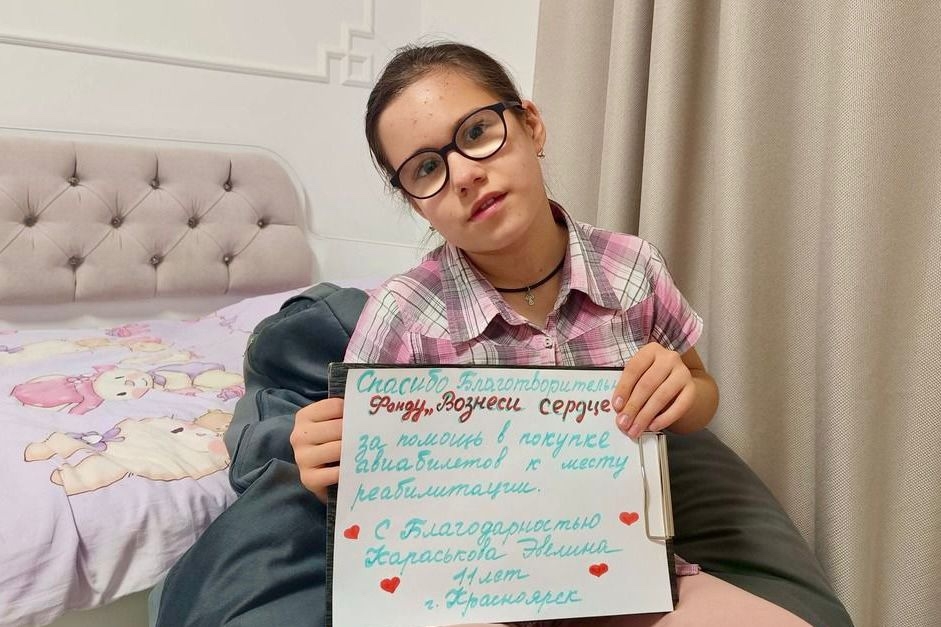 Спасибо Благотворительн
Фонду „Вознеси сердце
за помощь в покупке
авиабилетов к месту
реабилитации.
С Благодарностью
Караськова Эвелина
11 лет
г. Красноярск